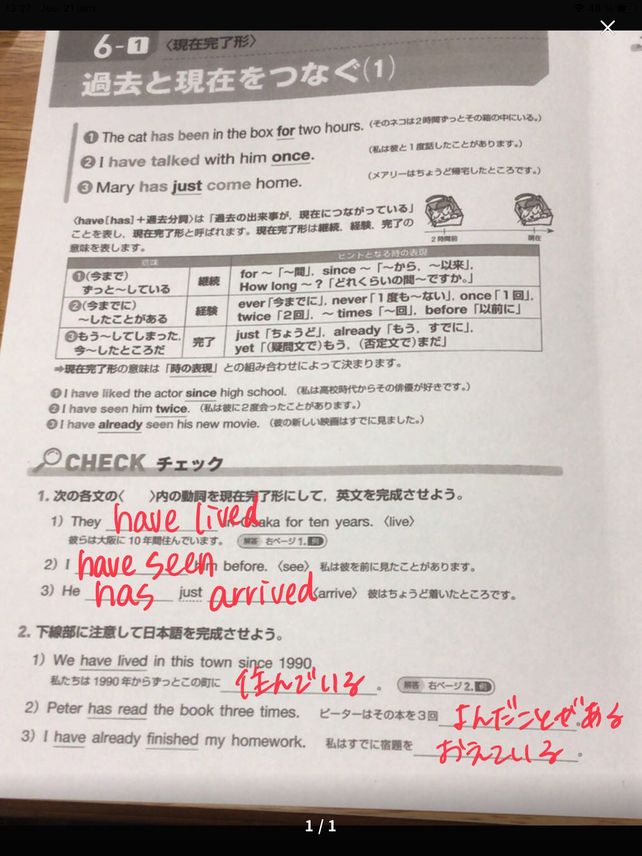 6-1 〈現在完了形〉
過去と現在をつなぐ(1)
❶ The cat has been in the box for two hours. (そのネコは2時間ずっとその箱の中にいる。)
❷ I have talked with him once. (私は彼と1度話したことがあります。)
❸ Mary has just come home. (メアリーはちょうど帰宅したところです。)
〈have[has]+過去分詞〉は「過去の出来事が，現在につながっている」
ことを表し，現在完了形と呼ばれます。現在完了形は継続，経験，完了の
意味を表します。
2時間前 現在
意味 ヒントとなる時の表現
❶(今まで)
ずっと〜している 継続 for 〜「〜間」，since 〜「〜から，〜以来」，
How long 〜？「どれくらいの間〜ですか。」
❷(今までに)
〜したことがある 経験 ever「今までに」，never「1度も〜ない」，once「1回」，
twice「2回」，〜 times「〜回」，before「以前に」
❸もう〜してしまった，
今〜したところだ 完了 just「ちょうど」，already「もう，すでに」，
yet「(疑問文で)もう，(否定文で)まだ」
➡現在完了形の意味は「時の表現」との組み合わせによって決まります。
❶ I have liked the actor since high school. (私は高校時代からその俳優が好きです。)
❷ I have seen him twice. (私は彼に2度会ったことがあります。)
❸ I have already seen his new movie. (彼の新しい映画はすでに見ました。)
CHECK チェック
1. 次の各文の〈 〉内の動詞を現在完了形にして，英文を完成させよう。
1) They have lived in Osaka for ten years. 〈live〉
彼らは大阪に10年間住んでいます。 解答 右ページ1.
2) I have seen him before. 〈see〉 私は彼を前に見たことがあります。
3) He has just arrived 〈arrive〉 彼はちょうど着いたところです。
2. 下線部に注意して日本語を完成させよう。
1) We have lived in this town since 1990.
私たちは1990年からずっとこの町に 住んでいる 。 解答 右ページ2.
2) Peter has read the book three times. ピーターはその本を3回 よんだことがある 。
3) I have already finished my homework. 私はすでに宿題を おえている 。
1 / 1